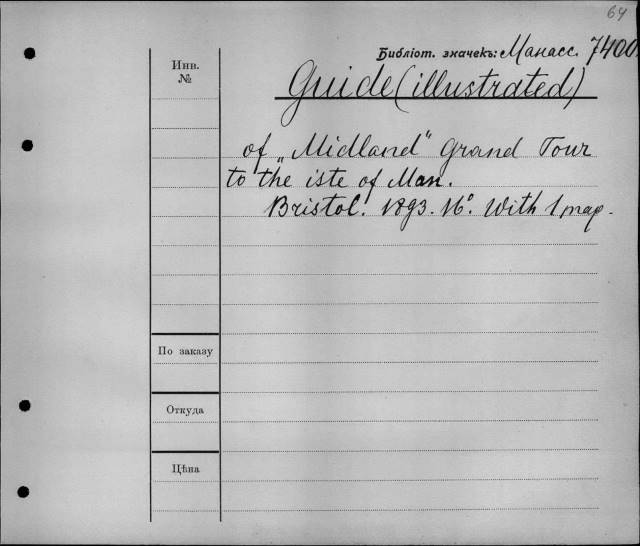 64
Библіот. значекъ: Манасс. 7400
Инв.
№
Guide (illustrated)
of „Midland" Grand Tour
to the iste of Man.
Bristol. 1893. 16°. With 1 map.
По заказу
Откуда
Цѣна